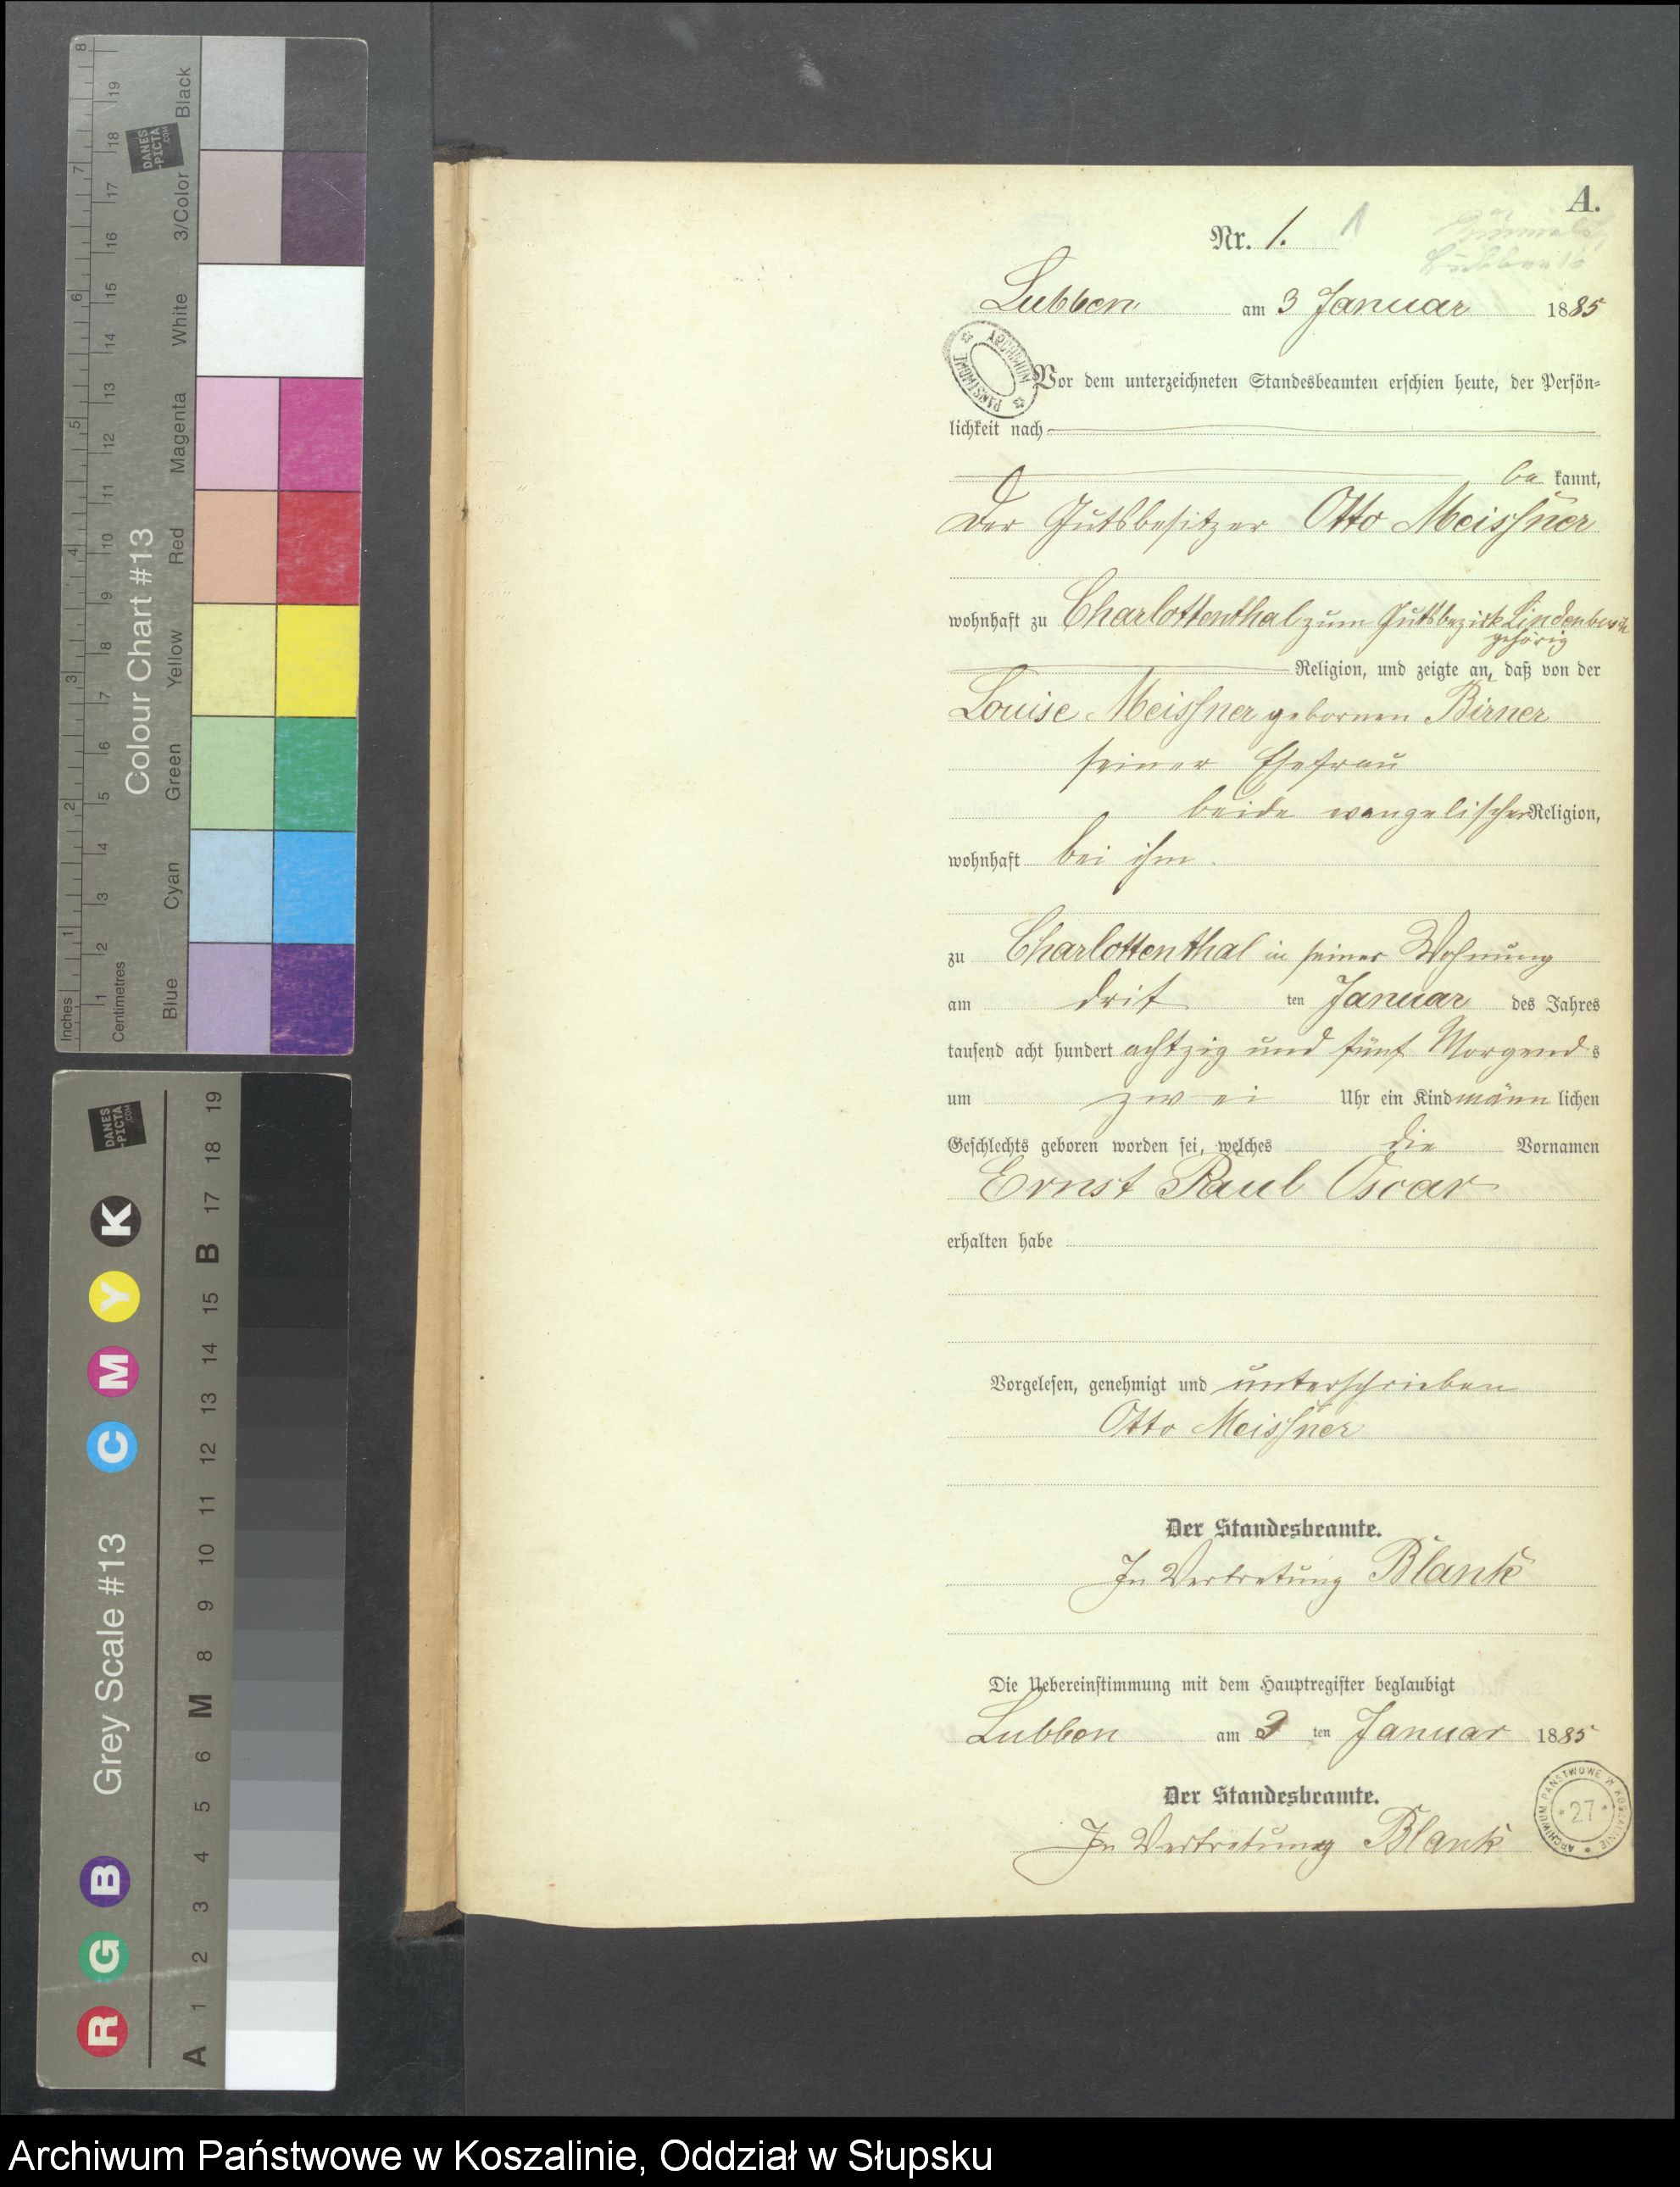 8
19
DANES
-PICTA
.COM
Black
7
18
17
3/Color
16
6
15
White
14
13
5
12
Magenta
11
4
10
Red
Colour Chart #13
9
3
8
Yellow
7
6
Green
2
5
4
Cyan
3
1
2
1
Inches
Centimetres
Blue
DANES
-PICTA
.COM
19
18
17
K
B
Y
15
14
M
13
12
C
11
10
Grey Scale #13
9
8
M
6
5
4
B
3
G
2
1
R
A
A.
Nr. 1. 1
Lubben am 3 Januar 1885
Vor dem unterzeichneten Standesbeamten erschien heute, der Persön-
lichkeit nach
be kannt,
der Gutsbesitzer Otto Meissner
wohnhaft zu Charlottenthal zum Gutsbezirk
gehörig
Religion, und zeigte an, daß von der
Louise Meissner gebornen Birner
seiner Ehefrau
beide evangelischer Religion,
wohnhaft bei ihm.
zu Charlottenthal in seiner Wohnung
am drit ten Januar des Jahres
tausend acht hundert achtzig und fünf Morgend s
um zwei Uhr ein Kind männ lichen
Geschlechts geboren worden sei, welches die Vornamen
Ernst Paul Oscar
erhalten habe
Vorgelesen, genehmigt und unterschrieben
Otto Meissner
Der Standesbeamte.
In Vertretung Blank
Die Uebereinstimmung mit dem Hauptregister beglaubigt
Lubben am 3 ten Januar 1885
Der Standesbeamte.
In Vertretung Blank
ARCHIWUM PAŃSTWOWE W KOSZALINIE
* 27 *
Archiwum Państwowe w Koszalinie, Oddział w Słupsku